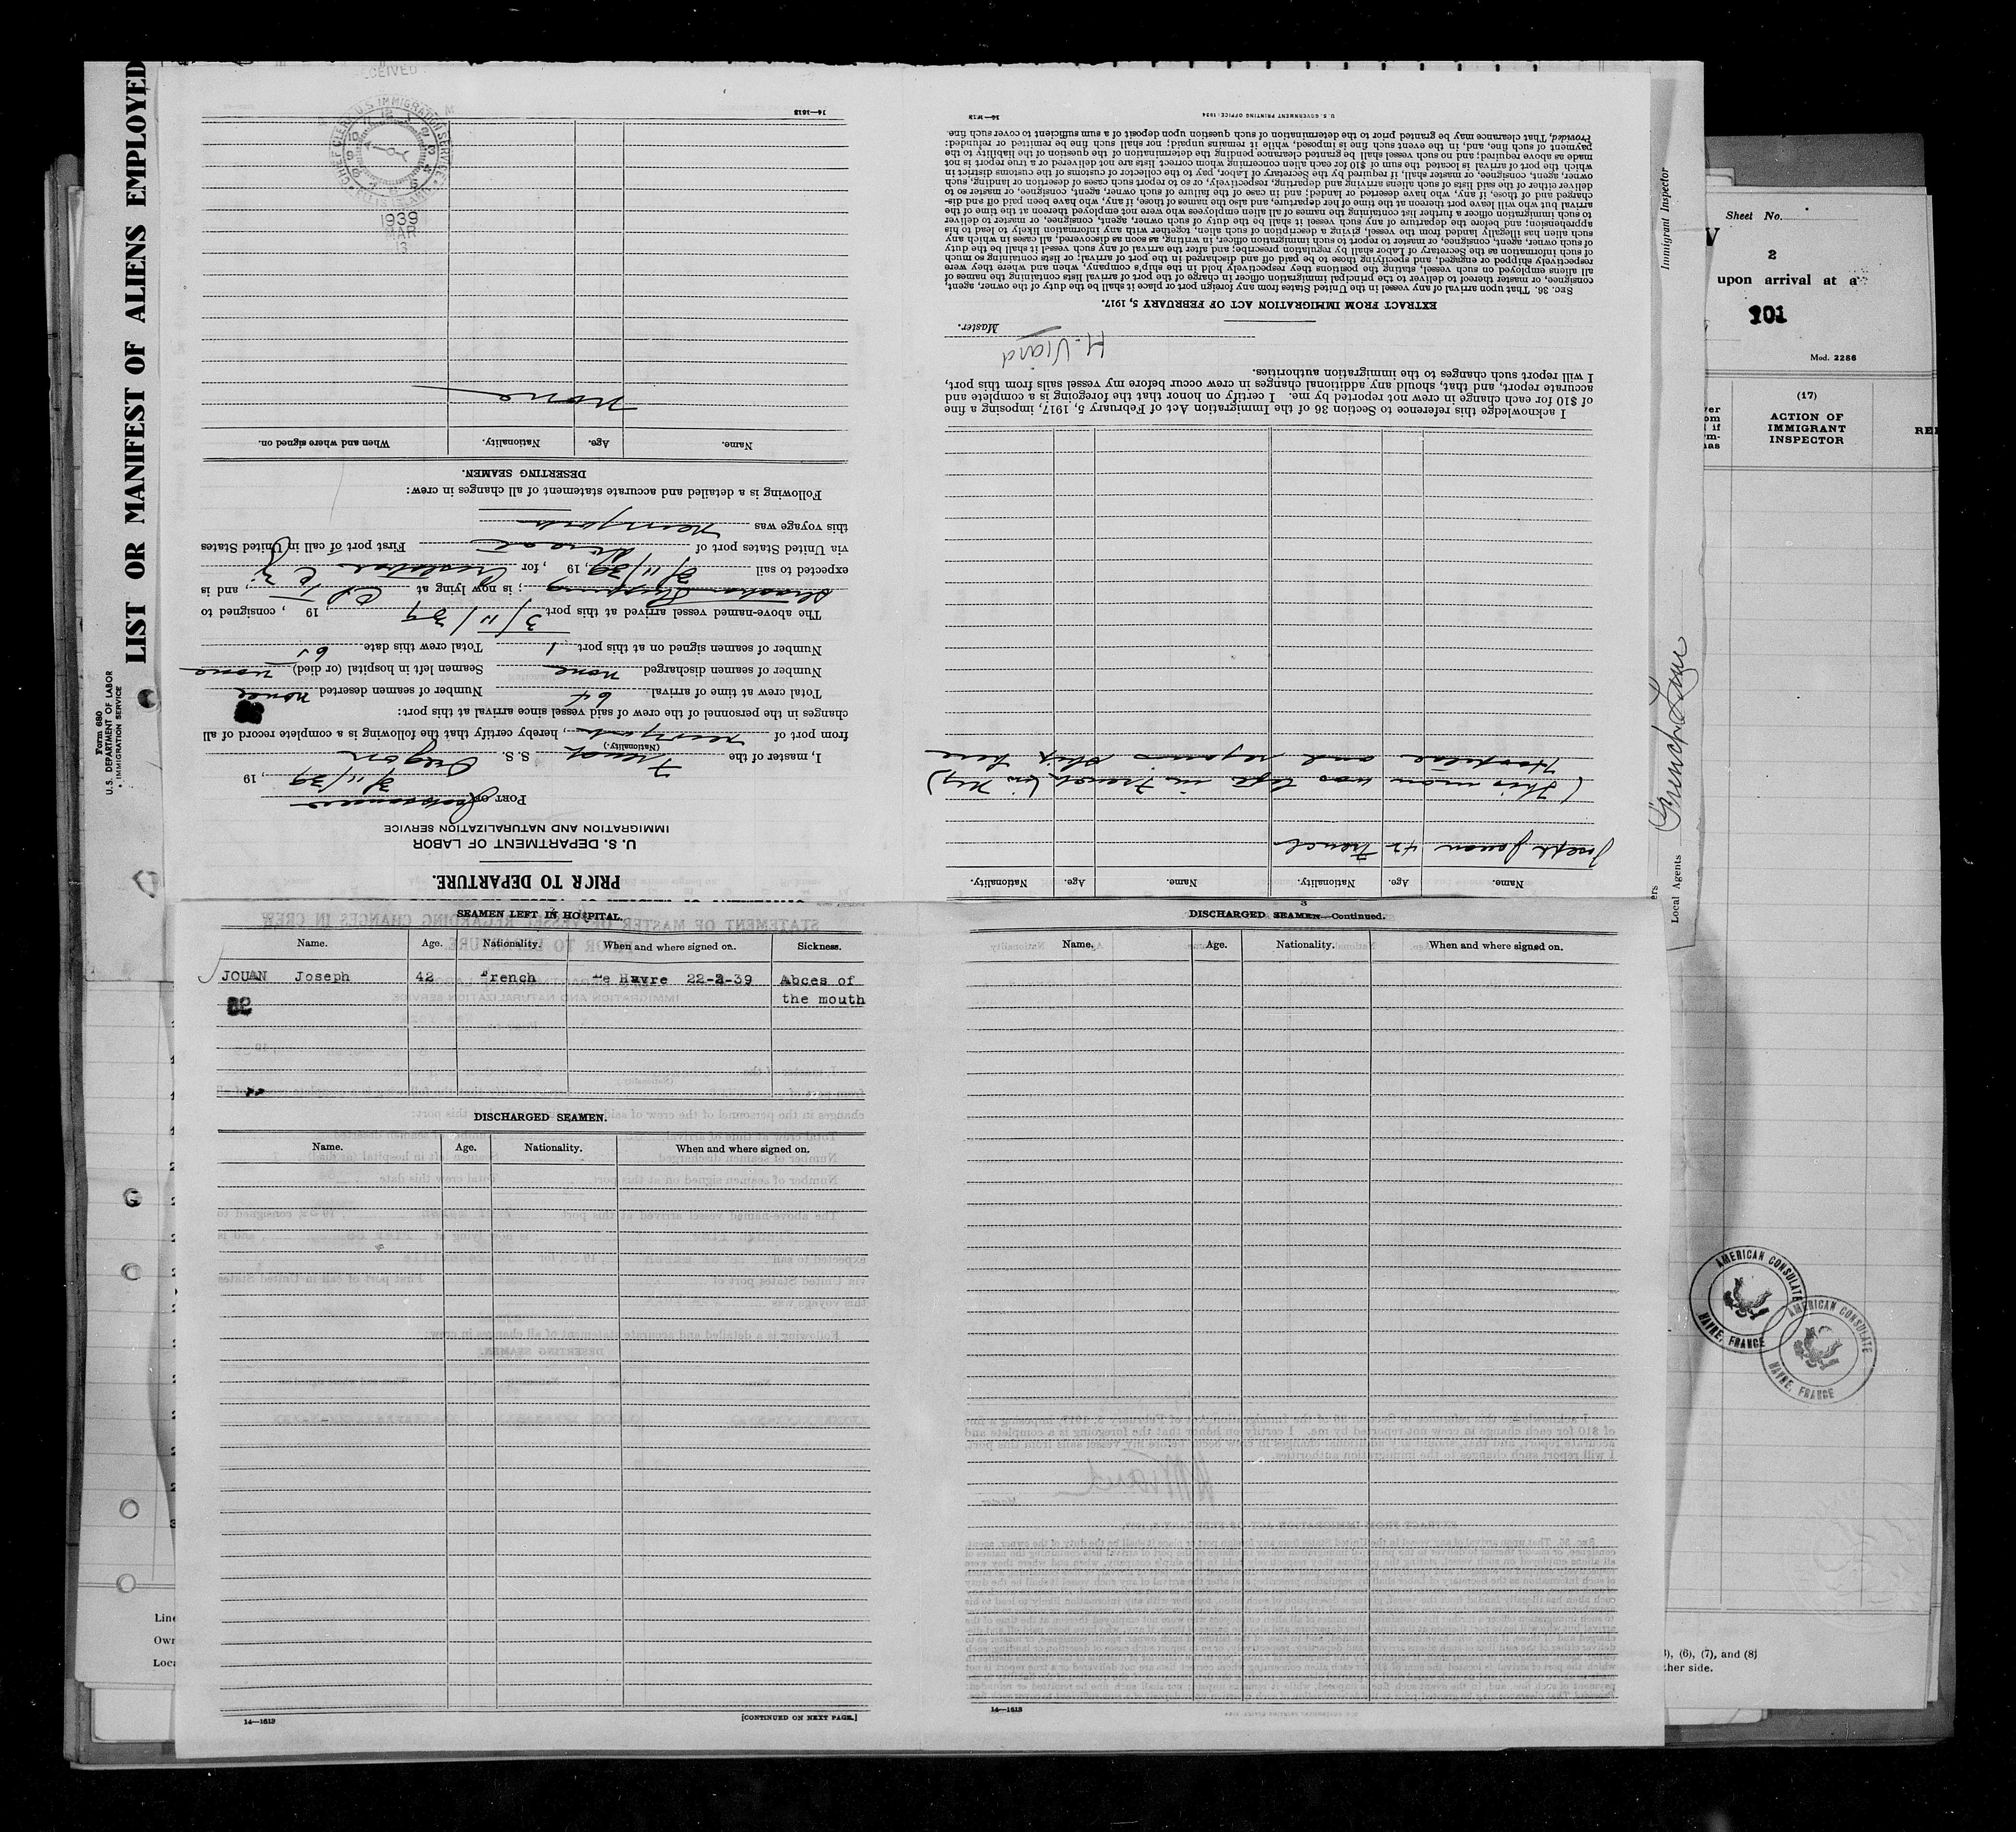 LIST OR MANIFEST OF ALIENS EMPLOYED
Form 680
U.S. DEPARTMENT OF LABOR
IMMIGRATION SERVICE
PRIOR TO DEPARTURE.
U. S. DEPARTMENT OF LABOR
IMMIGRATION AND NATURALIZATION SERVICE
PORT OF Jacksonville
3/11/39, 19
I, master of the French S. S. Oregon
(Nationality.)
from port of New York, hereby certify that the following is a complete record of all
changes in the personnel of the crew of said vessel since arrival at this port:
Total crew at time of arrival 64 Number of seamen deserted none
Number of seamen discharged none Seamen left in hospital (or died) none
Number of seamen signed on at this port 1 Total crew this date 65
The above-named vessel arrived at this port 3/11/39, 19 , consigned to
Strachan Shipping ; is now lying at , and is
expected to sail 3/11/39, 19 , for Cristobal C Z
via United States port of direct First port of call in United States
this voyage was New York
Following is a detailed and accurate statement of all changes in crew:
DESERTING SEAMEN.
Name. Age. Nationality. When and where signed on.
None
14—1613
RECEIVED
CHIEF CLERK U.S. IMMIGRATION SERVICE
ELLIS ISLAND
1939
MAR
13
Name. Age. Nationality. Name. Age. Nationality.
Joseph Jouan 42 French
(This man was left in French (in NY)
Hospital and rejoins ship here
I acknowledge this reference to Section 36 of the Immigration Act of February 5, 1917, imposing a fine
of $10 for each change in crew not reported by me. I certify on honor that the foregoing is a complete and
accurate report, and that, should any additional changes in crew occur before my vessel sails from this port,
I will report such changes to the immigration authorities.
H. Viard
Master.
EXTRACT FROM IMMIGRATION ACT OF FEBRUARY 5, 1917.
SEC. 36. That upon arrival of any vessel in the United States from any foreign port or place it shall be the duty of the owner, agent,
consignee, or master thereof to deliver to the principal immigration officer in charge of the port of arrival lists containing the names of
all aliens employed on such vessel, stating the positions they respectively hold in the ship's company, when and where they were
respectively shipped or engaged, and specifying those to be paid off and discharged in the port of arrival; or lists containing so much
of such information as the Secretary of Labor shall by regulation prescribe; and after the arrival of any such vessel it shall be the duty
of such owner, agent, consignee, or master to report to such immigration officer, in writing, as soon as discovered, all cases in which any
such alien has illegally landed from the vessel, giving a description of such alien, together with any information likely to lead to his
apprehension; and before the departure of any such vessel it shall be the duty of such owner, agent, consignee, or master to deliver
to such immigration officer a further list containing the names of all alien employees who were not employed thereon at the time of the
arrival but who will leave port thereon at the time of her departure, and also the names of those, if any, who have been paid off and dis-
charged and of those, if any, who have deserted or landed; and in case of the failure of such owner, agent, consignee, or master so to
deliver either of the said lists of such aliens arriving and departing, respectively, or so to report such cases of desertion or landing, such
owner, agent, consignee, or master, shall, if required by the Secretary of Labor, pay to the collector of customs of the customs district in
which the port of arrival is located the sum of $10 for each alien concerning whom correct lists are not delivered or a true report is not
made as above required; and no such vessel shall be granted clearance pending the determination of the question of the liability to the
payment of such fine, and, in the event such fine is imposed, while it remains unpaid; nor shall such fine be remitted or refunded:
Provided, That clearance may be granted prior to the determination of such question upon deposit of a sum sufficient to cover such fine.
U. S. GOVERNMENT PRINTING OFFICE: 1934
14—1613
Immigrant Inspector
French Line
Local Agents
Sheet No.
2
upon arrival at a
101
Mod. 2286
(17)
ACTION OF
IMMIGRANT
INSPECTOR
SEAMEN LEFT IN HOSPITAL.
Name. Age. Nationality. When and where signed on. Sickness.
JOUAN Joseph 42 French Le Havre 22-2-39 Abces of
the mouth
DISCHARGED SEAMEN.
Name. Age. Nationality. When and where signed on.
14—1613
[CONTINUED ON NEXT PAGE.]
3
DISCHARGED SEAMEN—Continued.
Name. Age. Nationality. When and where signed on.
14—1613
AMERICAN CONSULATE
HAVRE, FRANCE
AMERICAN CONSULATE
HAVRE, FRANCE
(6), (7), and (8)